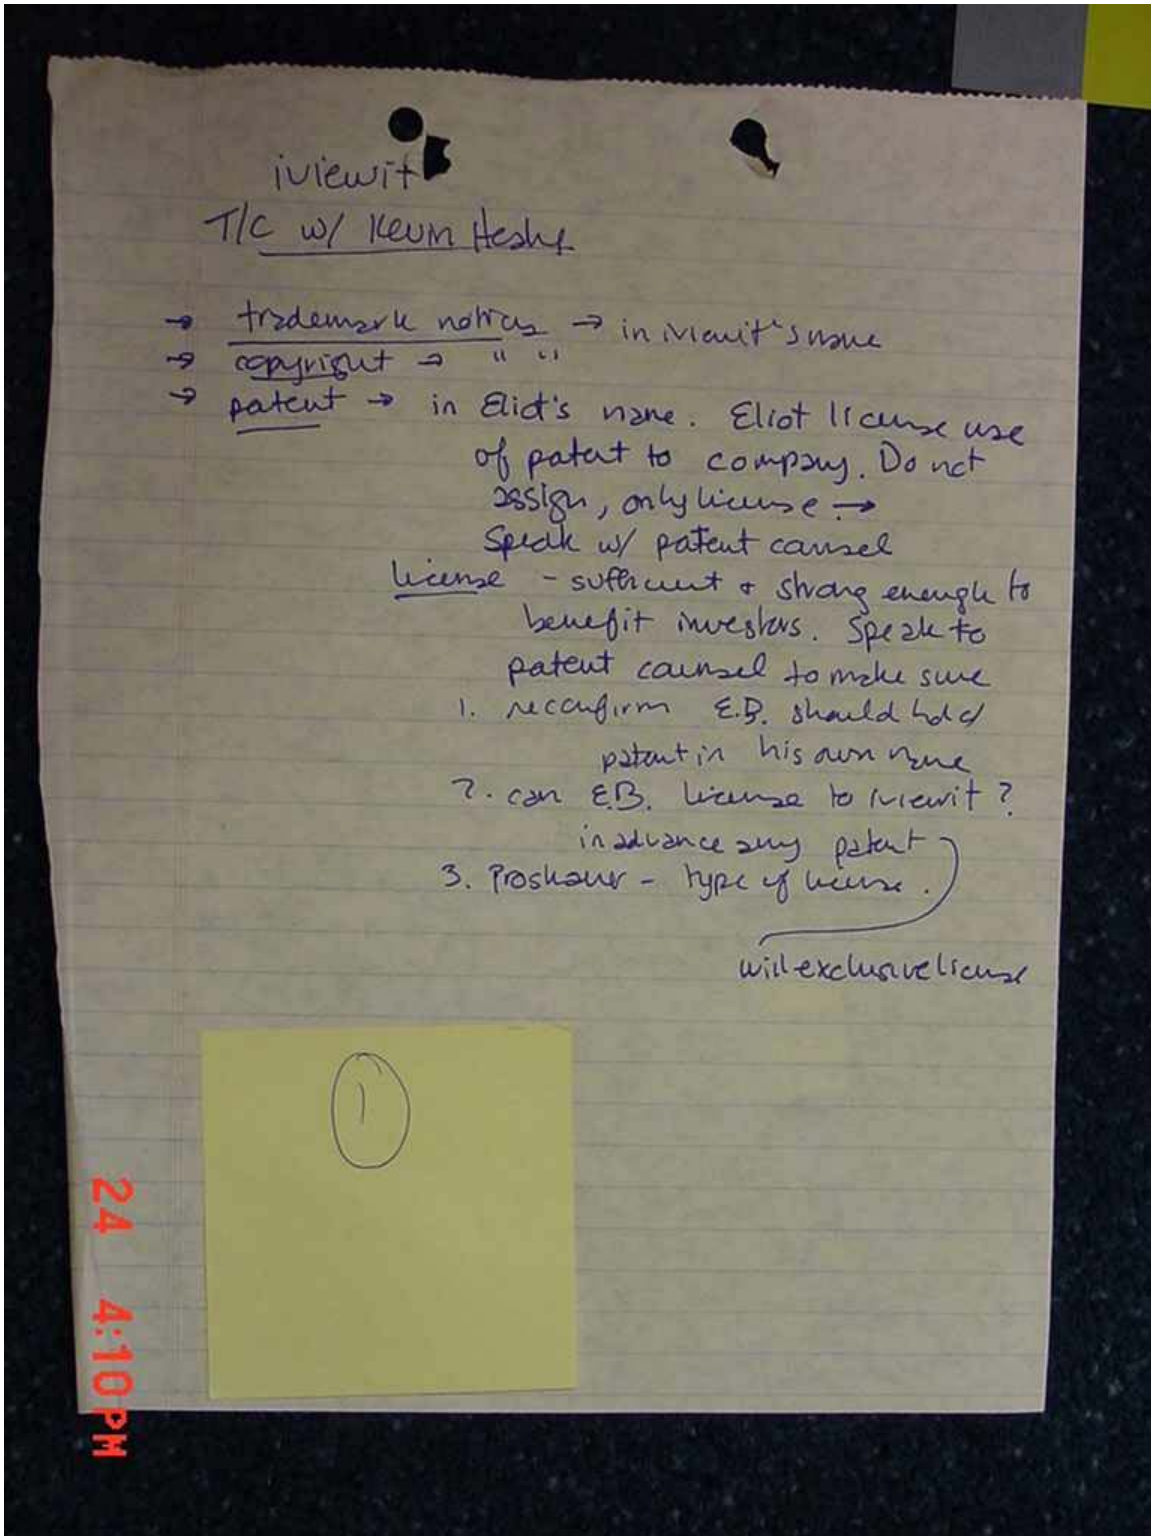 iviewit
T/C w/ Kevin
→ trademark notices → in iviewit's name
→ copyright → " "
→ patent → in Eliot's name. Eliot license use
of patent to company. Do not
assign, only license →
Speak w/ patent counsel
license - sufficient + strong enough to
benefit investors. Speak to
patent counsel to make sure
1. reconfirm E.B. should hold
patent in his own name
2. can E.B. license to iviewit?
in advance any patent
3. Proskauer - type of license.
will exclusive license
1
24 4:10PM